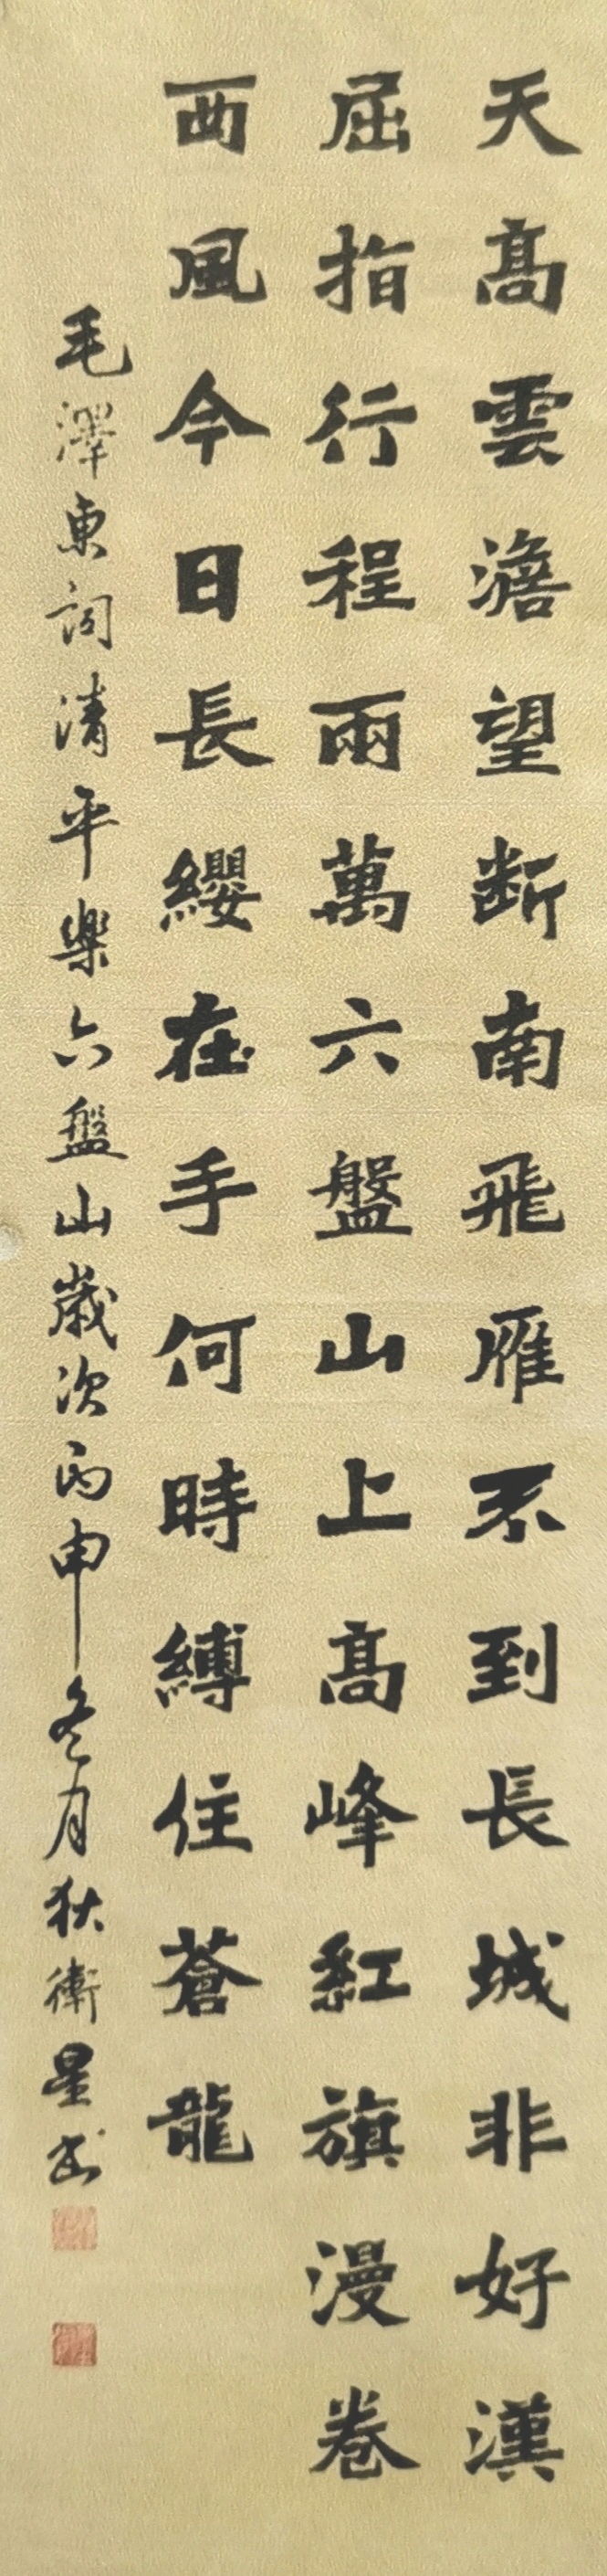 天高雲澹望断南飛雁不到長城非好漢
屈指行程兩萬六盤山上高峰紅旗漫卷
西風今日長纓在手何時縛住蒼龍
毛澤東詞清平樂六盤山歲次丙申冬月狄衛星书